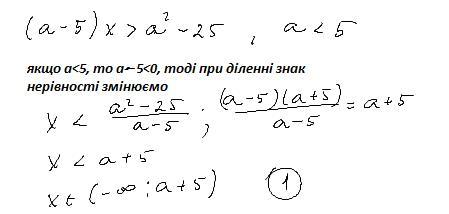 (a-5)x > a²-25 , a < 5
якщо a<5, то a-5<0, тоді при діленні знак
нерівності змінюємо
x < (a²-25)/(a-5) ; ((a-5)(a+5))/(a-5) = a+5
x < a+5
x ∈ (-∞; a+5) 1